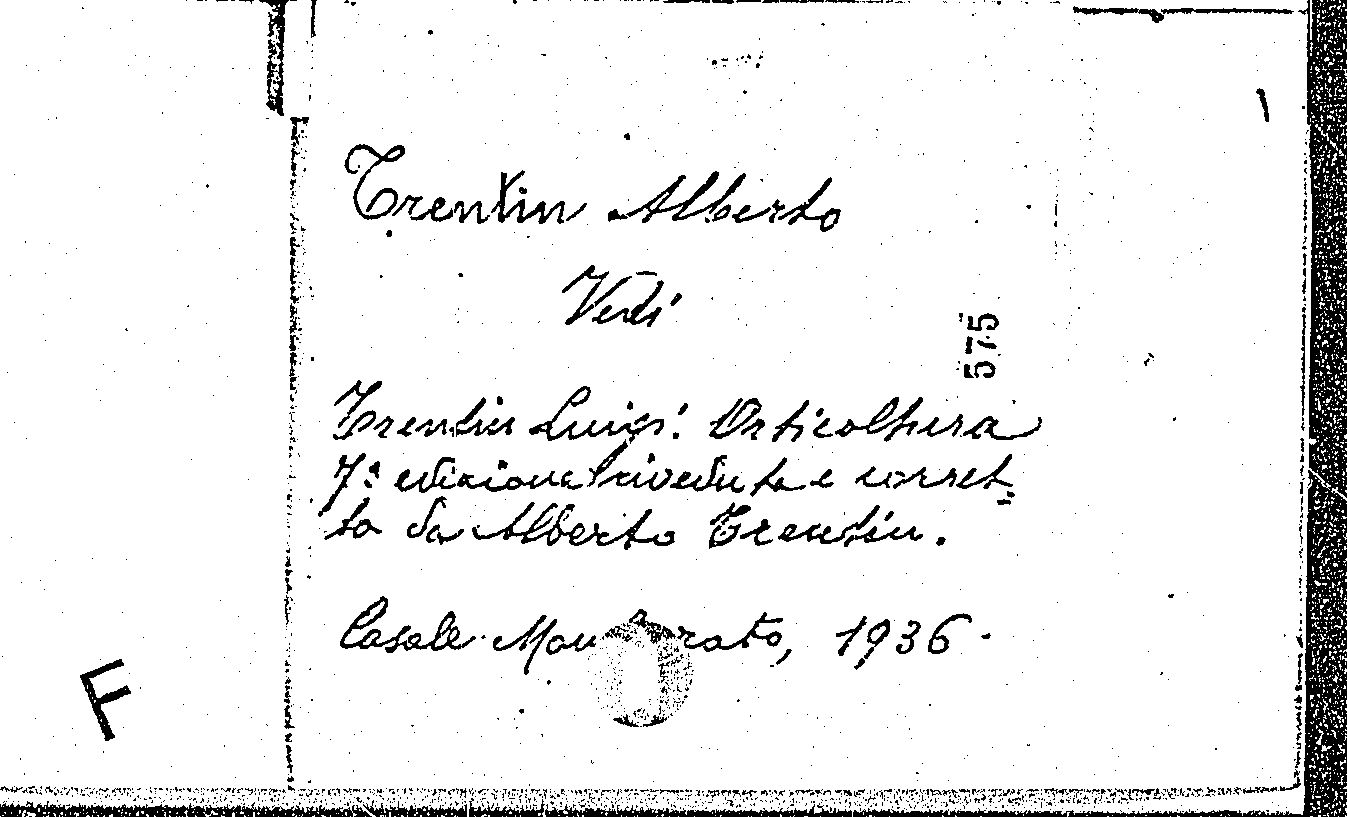 Trentin Alberto
Vedi
575
Trentin Luigi: Orticoltura
7ª edizione riveduta e corret=
ta da Alberto Trentin.
Casale Monferrato, 1936.
F